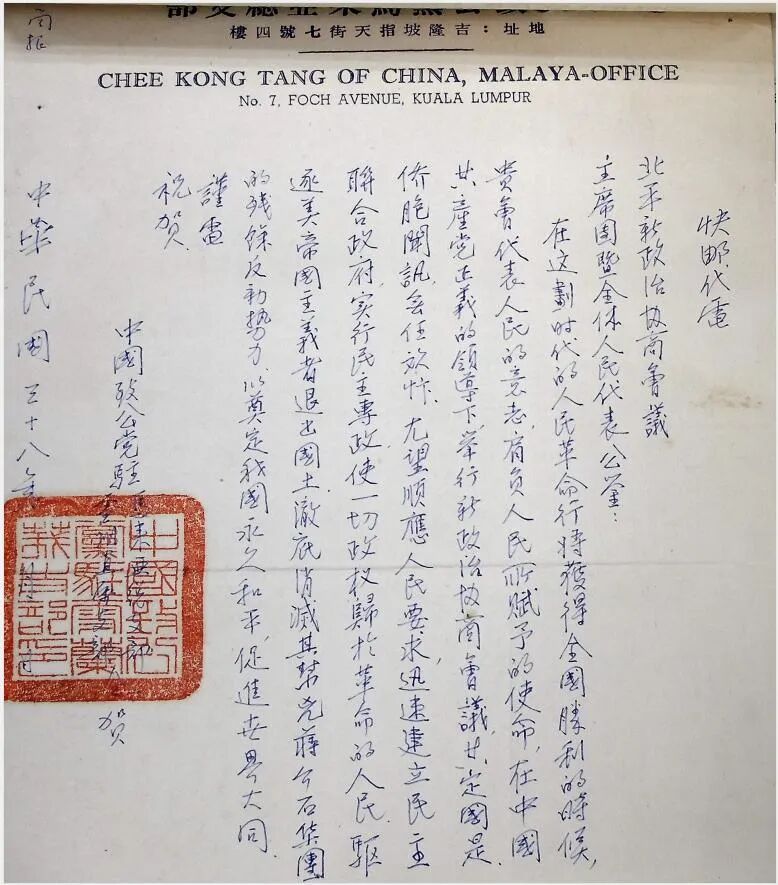 公黨馬來亞總支部
地址：吉隆坡指天街七號四樓
CHEE KONG TANG OF CHINA, MALAYA-OFFICE
No. 7, FOCH AVENUE, KUALA LUMPUR
快邮代電
北平新政治协商會議
主席團暨全体人民代表公鉴：
在这劃时代的人民革命行将獲得全國勝利的時候，
貴會代表人民的意志，肩負人民所賦予的使命，在中國
共產党正義的領導下举行新政治协商會議，共定國是，
侨胞聞訊，無任欣忭，尤望順應人民要求，迅速建立民主
聯合政府，实行民主專政，使一切政权歸於革命的人民，驅
逐美帝國主義者退出國土，澈底消滅其幫兇蔣介石集團
的残餘反動势力，以奠定我國永久和平，促進世界大同.
謹電
祝贺.
中國致公党駐馬来亞總支部
賀
中華民國三十八年